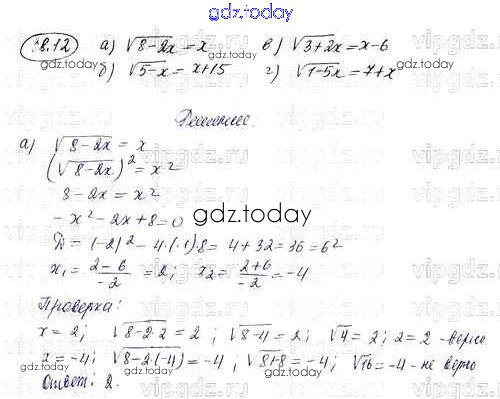 gdz.today
18.12 а) √(8-2x) = x в) √(3+2x) = x-6
б) √(5-x) = x+15 г) √(1-5x) = 7+x
gdz.today gdz.today
Решение.
а) √(8-2x) = x
(√(8-2x))² = x²
8-2x = x²
-x²-2x+8=0
gdz.today
D = (-2)² - 4·(-1)·8 = 4+32=36=6²
x₁ = (2-6)/-2 = 2; x₂ = (2+6)/-2 = -4
Проверка:
x = 2; √(8-2·2) = 2; √(8-4) = 2; √4 = 2; 2=2 - верно
x = -4; √(8-2·(-4)) = -4; √(8+8) = -4; √16 = -4 - не верно
Ответ: 2.
gdz.today gdz.today
vipgdz.ru